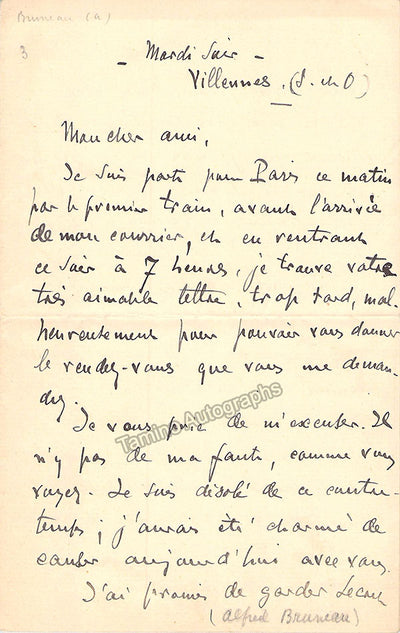 Bruneau (a)
3
- Mardi soir -
Villennes. (S. et O)
Mon cher ami,
Je suis parti pour Paris ce matin
par le premier train, avant l'arrivée
de mon courrier, et en rentrant
ce soir à 7 heures, je trouve votre
très aimable lettre, trop tard, mal-
heureusement pour pouvoir vous donner
le rendez-vous que vous me deman-
dez.
Je vous prie de m'excuser. Il
n'y pas de ma faute, comme vous
voyez. Je suis désolé de ce contre-
temps; j'aurais été charmé de
causer aujourd'hui avec vous.
J'ai promis de garder
(Alfred Bruneau)
Tamino Autographs